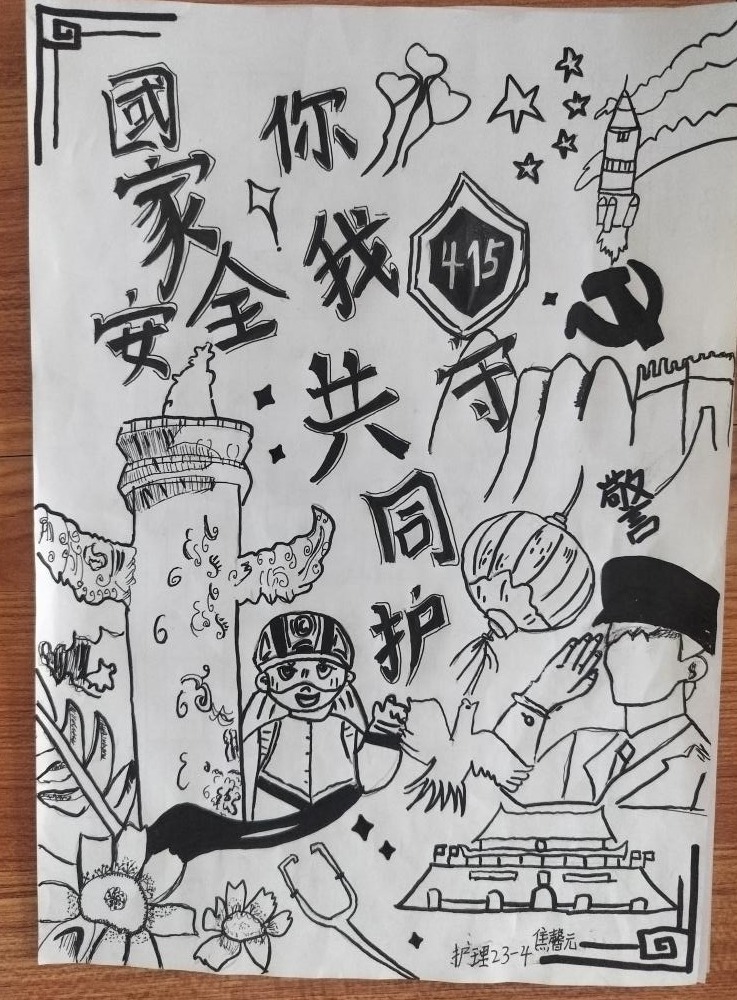 國家安全
你我共守同护
415
警
护理23-4 焦馨元